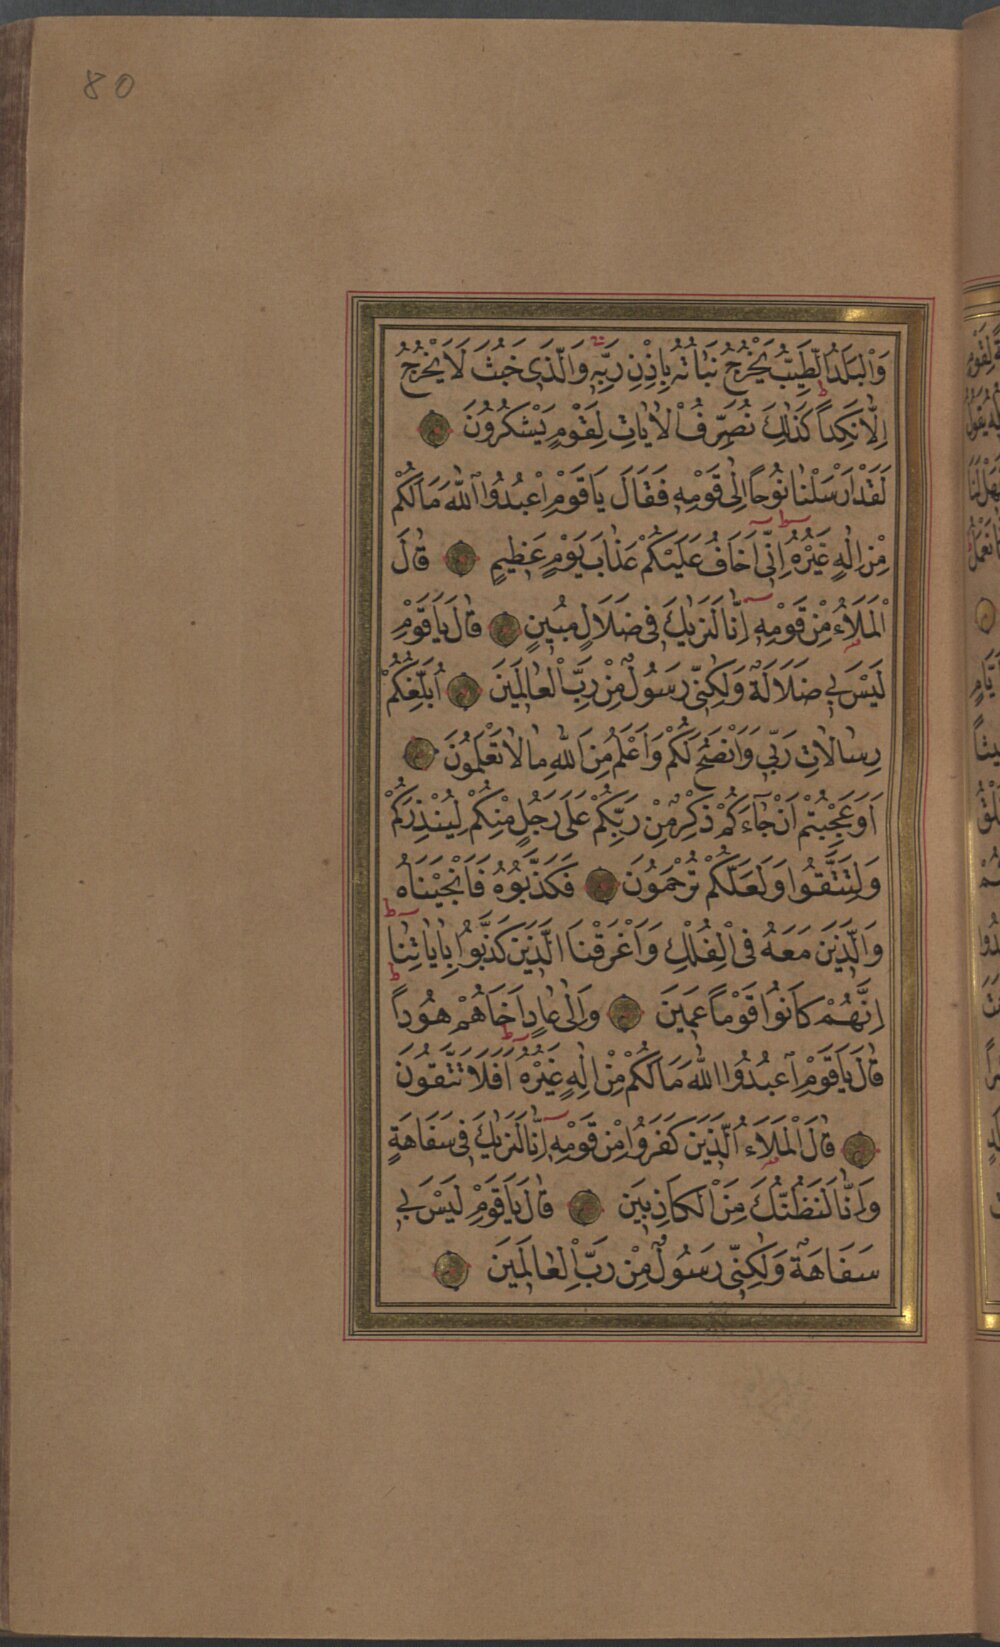 80
وَالْبَلَدُ الطَّيِّبُ يَخْرُجُ نَبَاتُهُ بِاِذْنِ رَبِّهٖ وَالَّذٖى خَبُثَ لَا يَخْرُجُ
اِلَّا نَكِداً كَذٰلِكَ نُصَرِّفُ الْاٰيَاتِ لِقَوْمٍ يَشْكُرُونَ
لَقَدْ اَرْسَلْنَا نُوحاً اِلٰى قَوْمِهٖ فَقَالَ يَا قَوْمِ اعْبُدُوا اللّٰهَ مَالَكُمْ
مِنْ اِلٰهٍ غَيْرُهُ اِنّٖى اَخَافُ عَلَيْكُمْ عَذَابَ يَوْمٍ عَظٖيمٍ قَالَ
الْمَلَاُ مِنْ قَوْمِهٖ اِنَّا لَنَرٰيكَ فٖى ضَلَالٍ مُبٖينٍ قَالَ يَا قَوْمِ
لَيْسَ بٖى ضَلَالَةٌ وَلٰكِنّٖى رَسُولٌ مِنْ رَبِّ الْعَالَمٖينَ اُبَلِّغُكُمْ
رِسَالَاتِ رَبّٖى وَاَنْصَحُ لَكُمْ وَاَعْلَمُ مِنَ اللّٰهِ مَا لَا تَعْلَمُونَ
اَوَعَجِبْتُمْ اَنْ جَآءَكُمْ ذِكْرٌ مِنْ رَبِّكُمْ عَلٰى رَجُلٍ مِنْكُمْ لِيُنْذِرَكُمْ
وَلِتَتَّقُوا وَلَعَلَّكُمْ تُرْحَمُونَ فَكَذَّبُوهُ فَاَنْجَيْنَاهُ
وَالَّذٖينَ مَعَهُ فِى الْفُلْكِ وَاَغْرَقْنَا الَّذٖينَ كَذَّبُوا بِاٰيَاتِنَا
اِنَّهُمْ كَانُوا قَوْماً عَمٖينَ وَاِلٰى عَادٍ اَخَاهُمْ هُوداً
قَالَ يَا قَوْمِ اعْبُدُوا اللّٰهَ مَالَكُمْ مِنْ اِلٰهٍ غَيْرُهُ اَفَلَا تَتَّقُونَ
قَالَ الْمَلَاُ الَّذٖينَ كَفَرُوا مِنْ قَوْمِهٖ اِنَّا لَنَرٰيكَ فٖى سَفَاهَةٍ
وَاِنَّا لَنَظُنُّكَ مِنَ الْكَاذِبٖينَ قَالَ يَا قَوْمِ لَيْسَ بٖى
سَفَاهَةٌ وَلٰكِنّٖى رَسُولٌ مِنْ رَبِّ الْعَالَمٖينَ